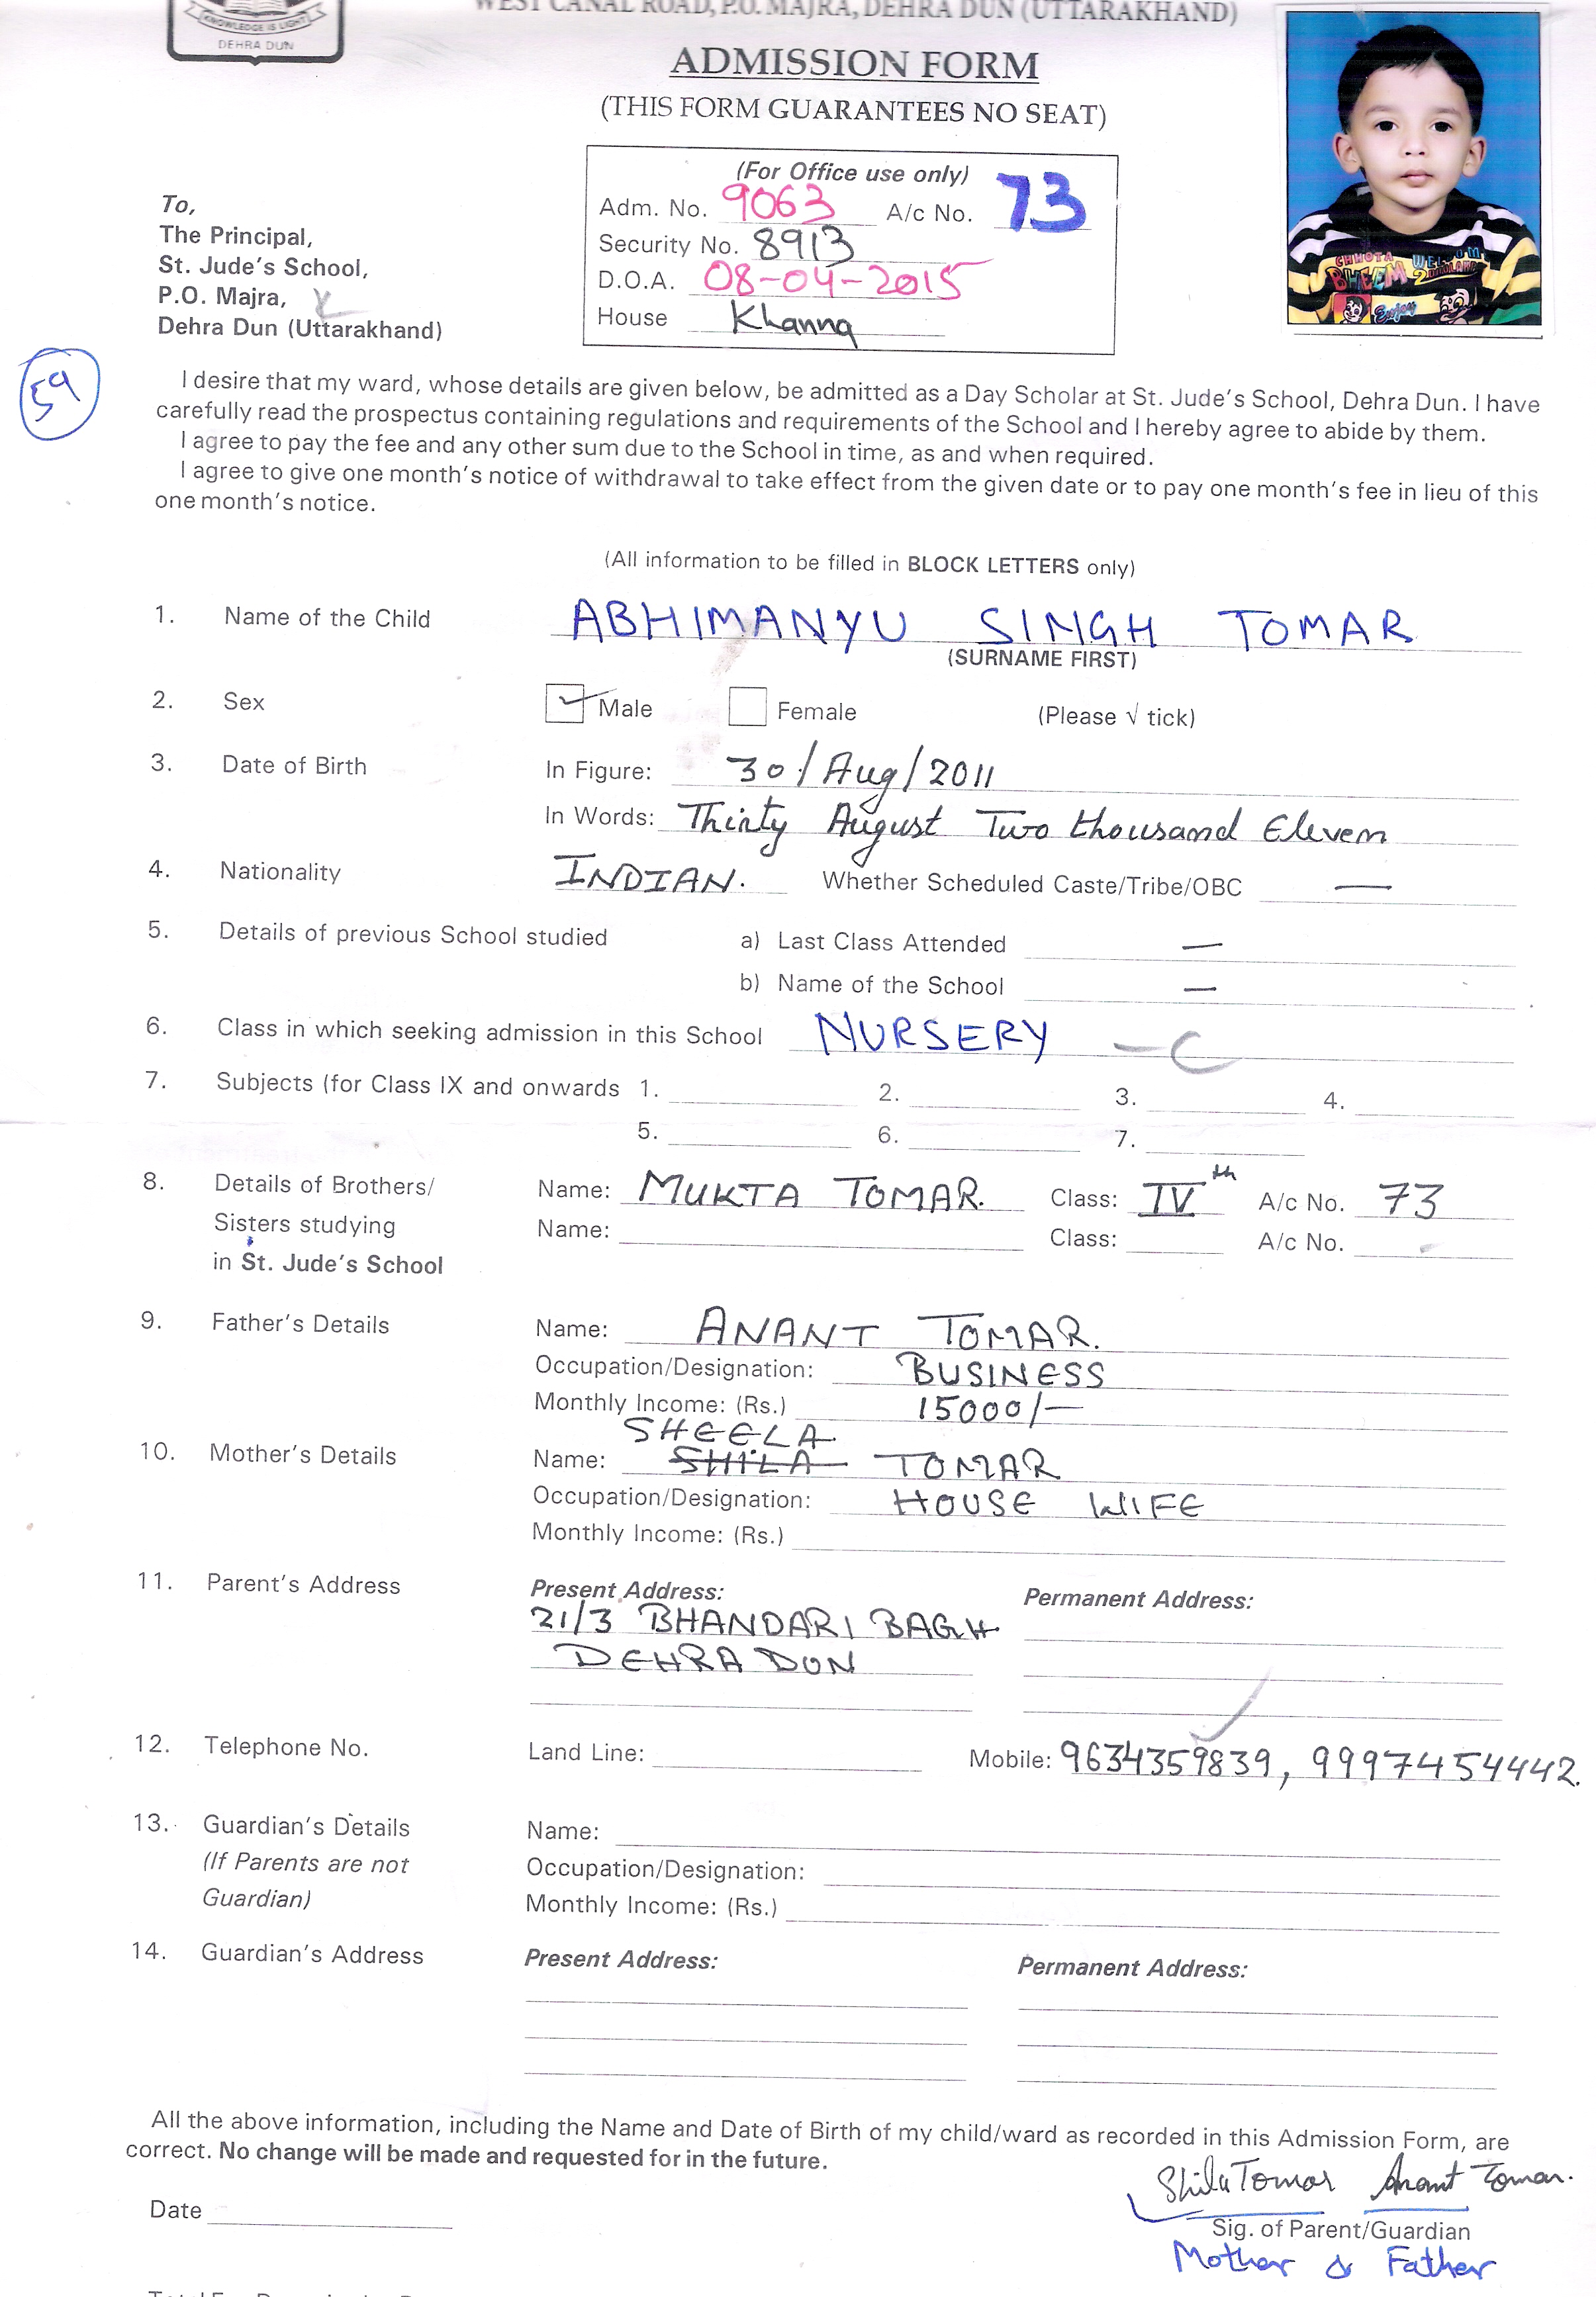 KNOWLEDGE IS LIGHT
DEHRA DUN
WEST CANAL ROAD, P.O. MAJRA, DEHRA DUN (UTTARAKHAND)
ADMISSION FORM
(THIS FORM GUARANTEES NO SEAT)
(For Office use only)
Adm. No. 9063 A/c No. 73
Security No. 8913
D.O.A. 08-04-2015
House Khanna
To,
The Principal,
St. Jude's School,
P.O. Majra,
Dehra Dun (Uttarakhand)
CHHOTA
BHEEM
Enjoy
59
I desire that my ward, whose details are given below, be admitted as a Day Scholar at St. Jude's School, Dehra Dun. I have
carefully read the prospectus containing regulations and requirements of the School and I hereby agree to abide by them.
I agree to pay the fee and any other sum due to the School in time, as and when required.
I agree to give one month's notice of withdrawal to take effect from the given date or to pay one month's fee in lieu of this
one month's notice.
(All information to be filled in BLOCK LETTERS only)
1. Name of the Child ABHIMANYU SINGH TOMAR
(SURNAME FIRST)
2. Sex ✓ Male Female (Please √ tick)
3. Date of Birth In Figure: 30/Aug/2011
In Words: Thirty August Two thousand Eleven
4. Nationality INDIAN. Whether Scheduled Caste/Tribe/OBC —
5. Details of previous School studied a) Last Class Attended —
b) Name of the School —
6. Class in which seeking admission in this School NURSERY — C
7. Subjects (for Class IX and onwards 1. 2. 3. 4.
5. 6. 7.
8. Details of Brothers/ Name: MUKTA TOMAR. Class: IVth A/c No. 73
Sisters studying Name: Class: A/c No.
in St. Jude's School
9. Father's Details Name: ANANT TOMAR.
Occupation/Designation: BUSINESS
Monthly Income: (Rs.) 15000/-
SHEELA
10. Mother's Details Name: SHILA TOMAR
Occupation/Designation: HOUSE WIFE
Monthly Income: (Rs.)
11. Parent's Address Present Address: Permanent Address:
21/3 BHANDARI BAGH
DEHRA DUN
12. Telephone No. Land Line: Mobile: 9634359839, 9997454442.
13. Guardian's Details Name:
(If Parents are not Occupation/Designation:
Guardian) Monthly Income: (Rs.)
14. Guardian's Address Present Address: Permanent Address:
All the above information, including the Name and Date of Birth of my child/ward as recorded in this Admission Form, are
correct. No change will be made and requested for in the future.
Shila Tomar Anant Tomar.
Date Sig. of Parent/Guardian
Mother & Father